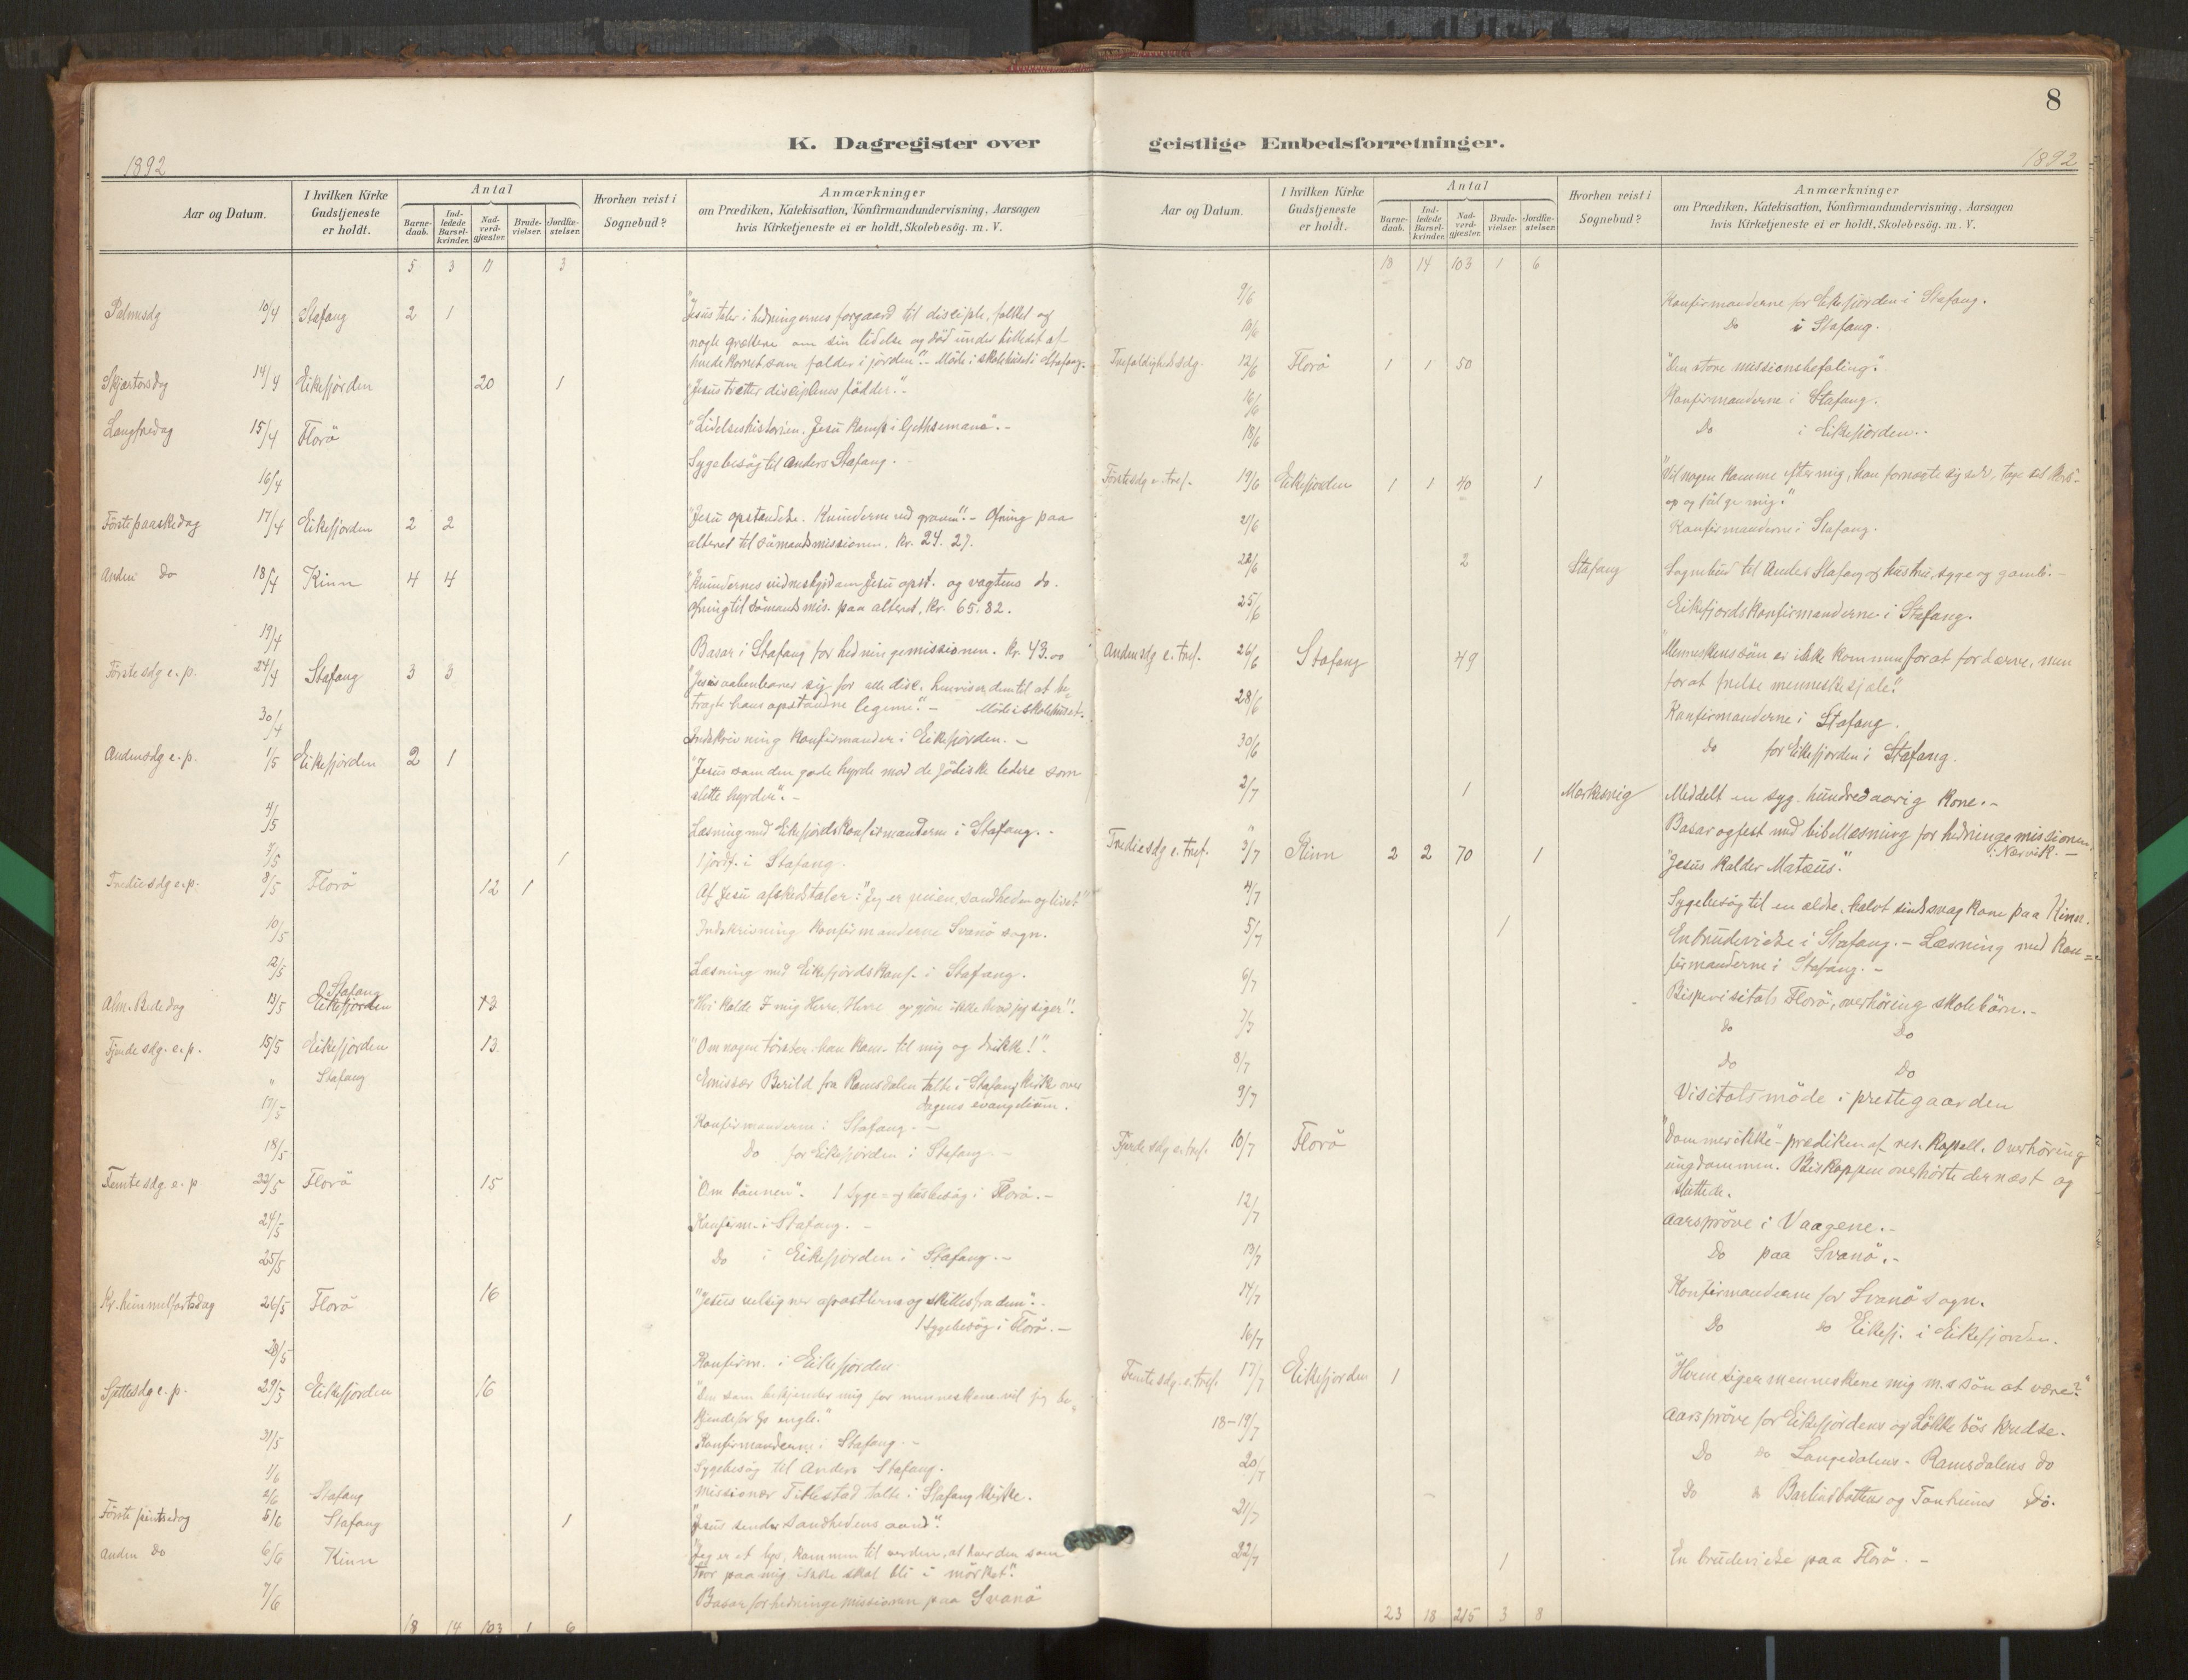 8
K. Dagregister over geistlige Embedsforretninger.
1892
1892
Aar og Datum.
I hvilken Kirke Gudstjeneste er holdt.
Antal
Barne-daab.
Ind-ledede Barsel-kvinder.
Nad-verd-gjæster.
Brude-vielser.
Jordfæ-stelser.
Hvorhen reist i Sognebud?
Anmærkninger
om Prædiken, Katekisation, Konfirmandundervisning, Aarsagen
hvis Kirketjeneste ei er holdt, Skolebesög. m. V.
5 3 11 3
Palmesdg 10/4 Stafang 2 1 "Jesus taler i hedningernes forgaard til disciple, folket og
nogle grækere om sin lidelse og död under billedet af
hvedekornet som falder i jorden". - Möde i skolehuset i Stafang.
Skjærtorsdag 14/4 Eikefjorden 20 1 "Jesus tvætter disciplenes födder." -
Langfredag 15/4 Florö "Lidelseshistorien. Jesu kamp i Gethsemane". -
16/4 Sygebesög til Anders Stafang. -
Förste paaskedag 17/4 Eikefjorden 2 2 "Jesu opstandelse. Kvinderne ved graven". - Ofring paa
alteret til sömandsmissionen. Kr. 24. 27.
Anden Do 18/4 Kinn 4 4 "Kvindernes vidnesbyrd om Jesu opst. og vagtens do.
Ofring til sömandsmis. paa alteret, Kr. 65.82.
19/4 Basar i Stafang for hedningemissionen. Kr. 43.00
Förstesdg e. p. 24/4 Stafang 3 3 "Jesus aabenbarer sig for alle disc. henviser dem til at be-
tragte hans opstandne legeme". - Möde i skolehuset.
30/4 Indskrivning konfirmander i Eikefjorden. -
Andensdg e. p. 1/5 Eikefjorden 2 1 "Jesus som den gode hyrde mod de jödiske ledere som
slette hyrder". -
4/5 Læsning med Eikefjordskonfirmanderne i Stafang. -
7/5 1 1 jordf. i Stafang.
Trediesdg e. p. 8/5 Florö 12 1 Af Jesu afskedstaler: "Jeg er veien, sandheden og livet"
10/5 Indskrivning konfirmanderne Svanö sogn.
12/5 Læsning med Eikefjordskonf. i Stafang.
Alm. Bededag 13/5 Stafang Eikefjorden 13 "Hvi kalde I mig Herre, Herre og gjöre ikke hvad jeg siger".
Fjerdesdg. e. p. 15/5 Eikefjorden 13 "Om nogen törster han kom til mig og drikke!".
" Stafang Emissær Berild fra Ramsdalen talte i Stafang Kirke over
dagens evangelium.
17/5 Konfirmanderne i Stafang. -
18/5 Do for Eikefjorden i Stafang -
Femtesdg e. p 22/5 Florö 15 "Om bönnen". 1 syge- og husbesög i Florö. -
24/5 Konfirm. i Stafang. -
25/5 Do i Eikefjorden i Stafang. -
Kr. himmelfartsdag 26/5 Florö 16 "Jesus velsigner apostlerne og skilles fra dem". -
1 sygebesög i Florö. -
28/5 Konfirm. i Eikefjorden
Sjettesdg e. p. 29/5 Eikefjorden 16 "Den som bekjender mig for menneskene vil jeg be-
kjende for Gs engle."
31/5 Konfirmanderne i Stafang. -
1/6 Sygebesög til Anders Stafang.
2/6 Stafang Missionær Titlestad talte i Stafang Kirke.
Förste pintsedag 5/6 Stafang 1 "Jesus sender sandhedens aand".
Anden Do 6/6 Kinn "Jeg er et lys, kommen til verden, at hver den som
tror paa mig ikke skal bli i mörket".
7/6 Basar for hedningemissionen paa Svanö
18 14 103 1 6
Aar og Datum.
I hvilken Kirke Gudstjeneste er holdt.
Antal
Barne-daab.
Ind-ledede Barsel-kvinder.
Nad-verd-gjæster.
Brude-vielser.
Jordfæ-stelser.
Hvorhen reist i Sognebud?
Anmærkninger
om Prædiken, Katekisation, Konfirmandundervisning, Aarsagen
hvis Kirketjeneste ei er holdt, Skolebesög. m. V.
18 14 103 1 6
9/6 Konfirmanderne for Eikefjorden i Stafang.
10/6 Do i Stafang.
Trefoldighedssdg. 12/6 Florö 1 1 50 "Den store missionsbefaling".
16/6 Konfirmanderne i Stafang.
18/6 Do i Eikefjorden. -
Förstesdg e. tref. 19/6 Eikefjorden 1 1 40 1 "Vil nogen komme efter mig, han fornegte sig selv, tage sit kors
op og fölge mig."
21/6 Konfirmanderne i Stafang.
22/6 2 Stafang Sognebud til Anders Stafang og hustru, syge og gamle. -
25/6 Eikefjordskonfirmanderne i Stafang.
Andensdg e. tref. 26/6 Stafang 49 "Menneskens sön er ikke kommen for at fordærve, men
for at frelse menneskesjæle."
28/6 Konfirmanderne i Stafang.
30/6 Do for Eikefjorden i Stafang.
2/7 1 Meddelt en syg. hundredaarig kone. -
Basar og fest med bibellæsning for hedningemissionen
i Nærvik. -
Trediesdg e. tref. 3/7 Kinn 2 2 70 1 "Jesus kalder Matæus."
4/7 Sygebesög til en ældre, halvt sindssvag kone paa Kinn.
5/7 1 En brudevielse i Stafang. - Læsning med kon-
firmanderne i Stafang. -
6/7 Bispevisitats Florö, overhöring skolebörn. -
7/7 Do Do
8/7 Do Do
9/7 Visitatsmöde i prestegaarden
Fjerdesdg e. tref. 10/7 Florö "Dömmer ikke" - prædiken af res. kapell. Overhöring
ungdommen. Biskoppen overhörte dernæst og
sluttede.
12/7 Aarspröve i Vaagene. -
13/7 Do paa Svanö. -
14/7 Konfirmanderne for Svanö sogn.
16/7 Do do Eikefj. i Eikefjorden.
Femtesdg. e. tref. 17/7 Eikefjorden 1 "Hvem siger menneskene mig m.s sön at være?"
18-19/7 Aarspröve for Eikefjordens og Lökkebös kredse.
20/7 Do do Langedalens - Ramsdalens do
21/7 Do do Barlindbottens og Tonheims Do.
22/7 1 En brudevielse paa Florö. -
23 18 215 3 8